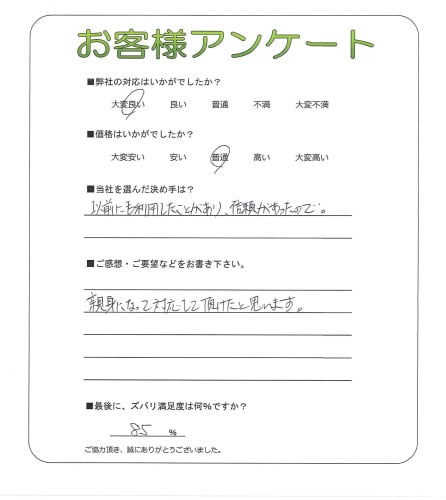 お客様アンケート
■弊社の対応はいかがでしたか？
大変良い 良い 普通 不満 大変不満
■価格はいかがでしたか？
大変安い 安い 普通 高い 大変高い
■当社を選んだ決め手は？
以前にも利用したことがあり、信頼があったので…。
■ご感想・ご要望などをお書き下さい。
親身になって対応して頂けたと思います。
■最後に、ズバリ満足度は何%ですか？
85 %
ご協力頂き、誠にありがとうございました。